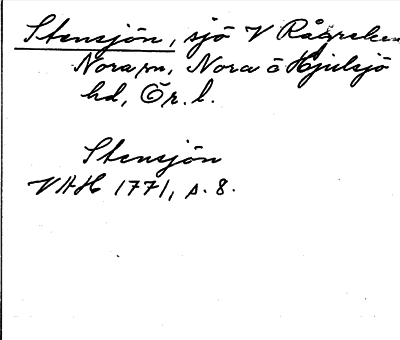 Stensjön, sjö V Rågreken
Nora sn, Nora o Hjulsjö
hd, Ör. l.
Stensjön
VAH 1771, s. 8.